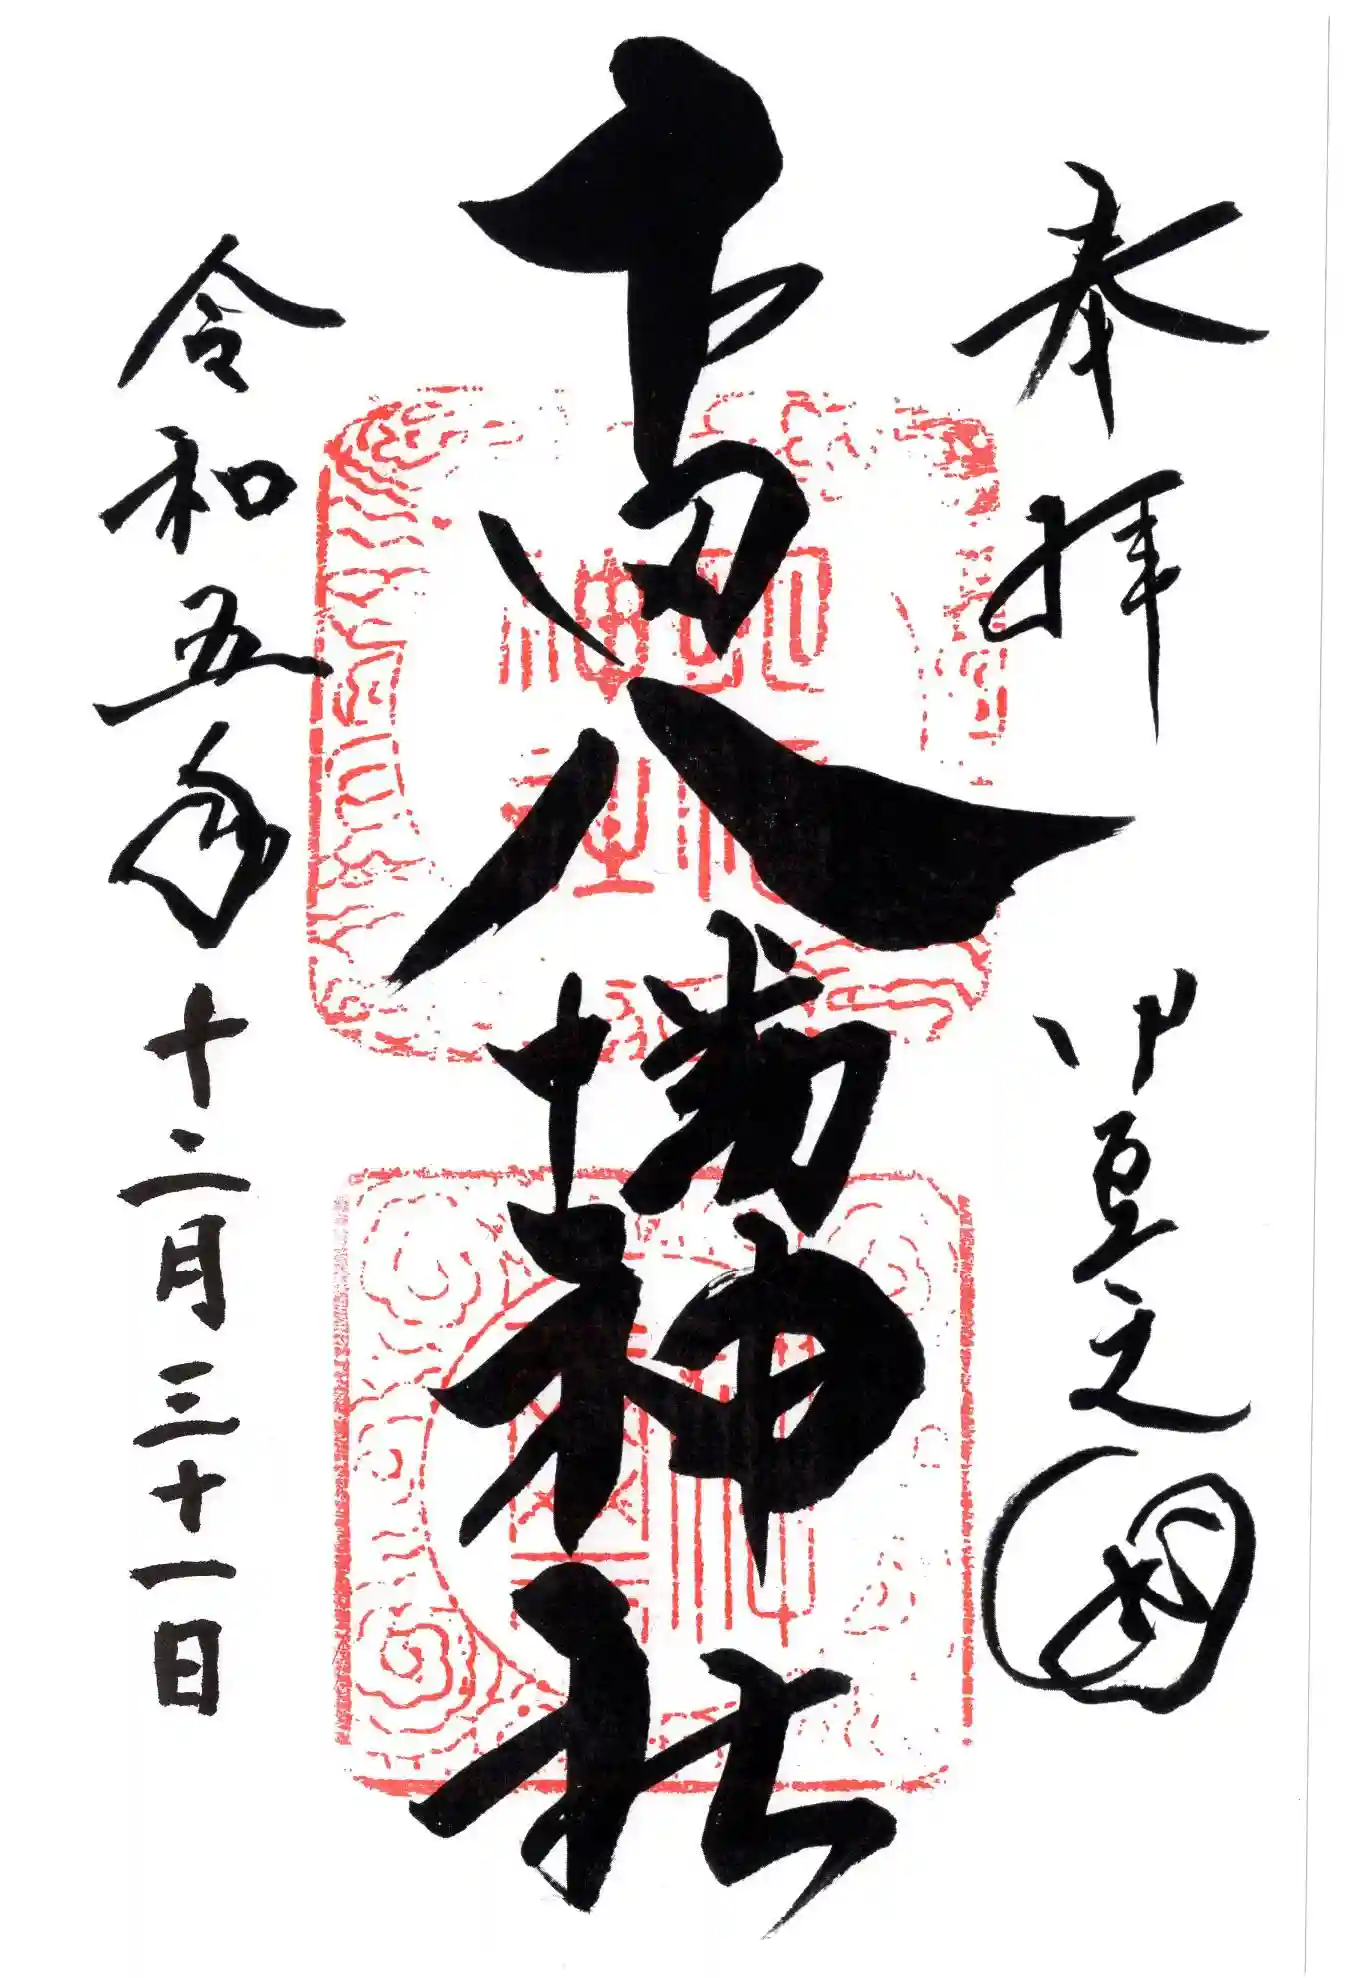 奉拝 伊豆之國
下田八幡神社
令和五年十二月三十一日